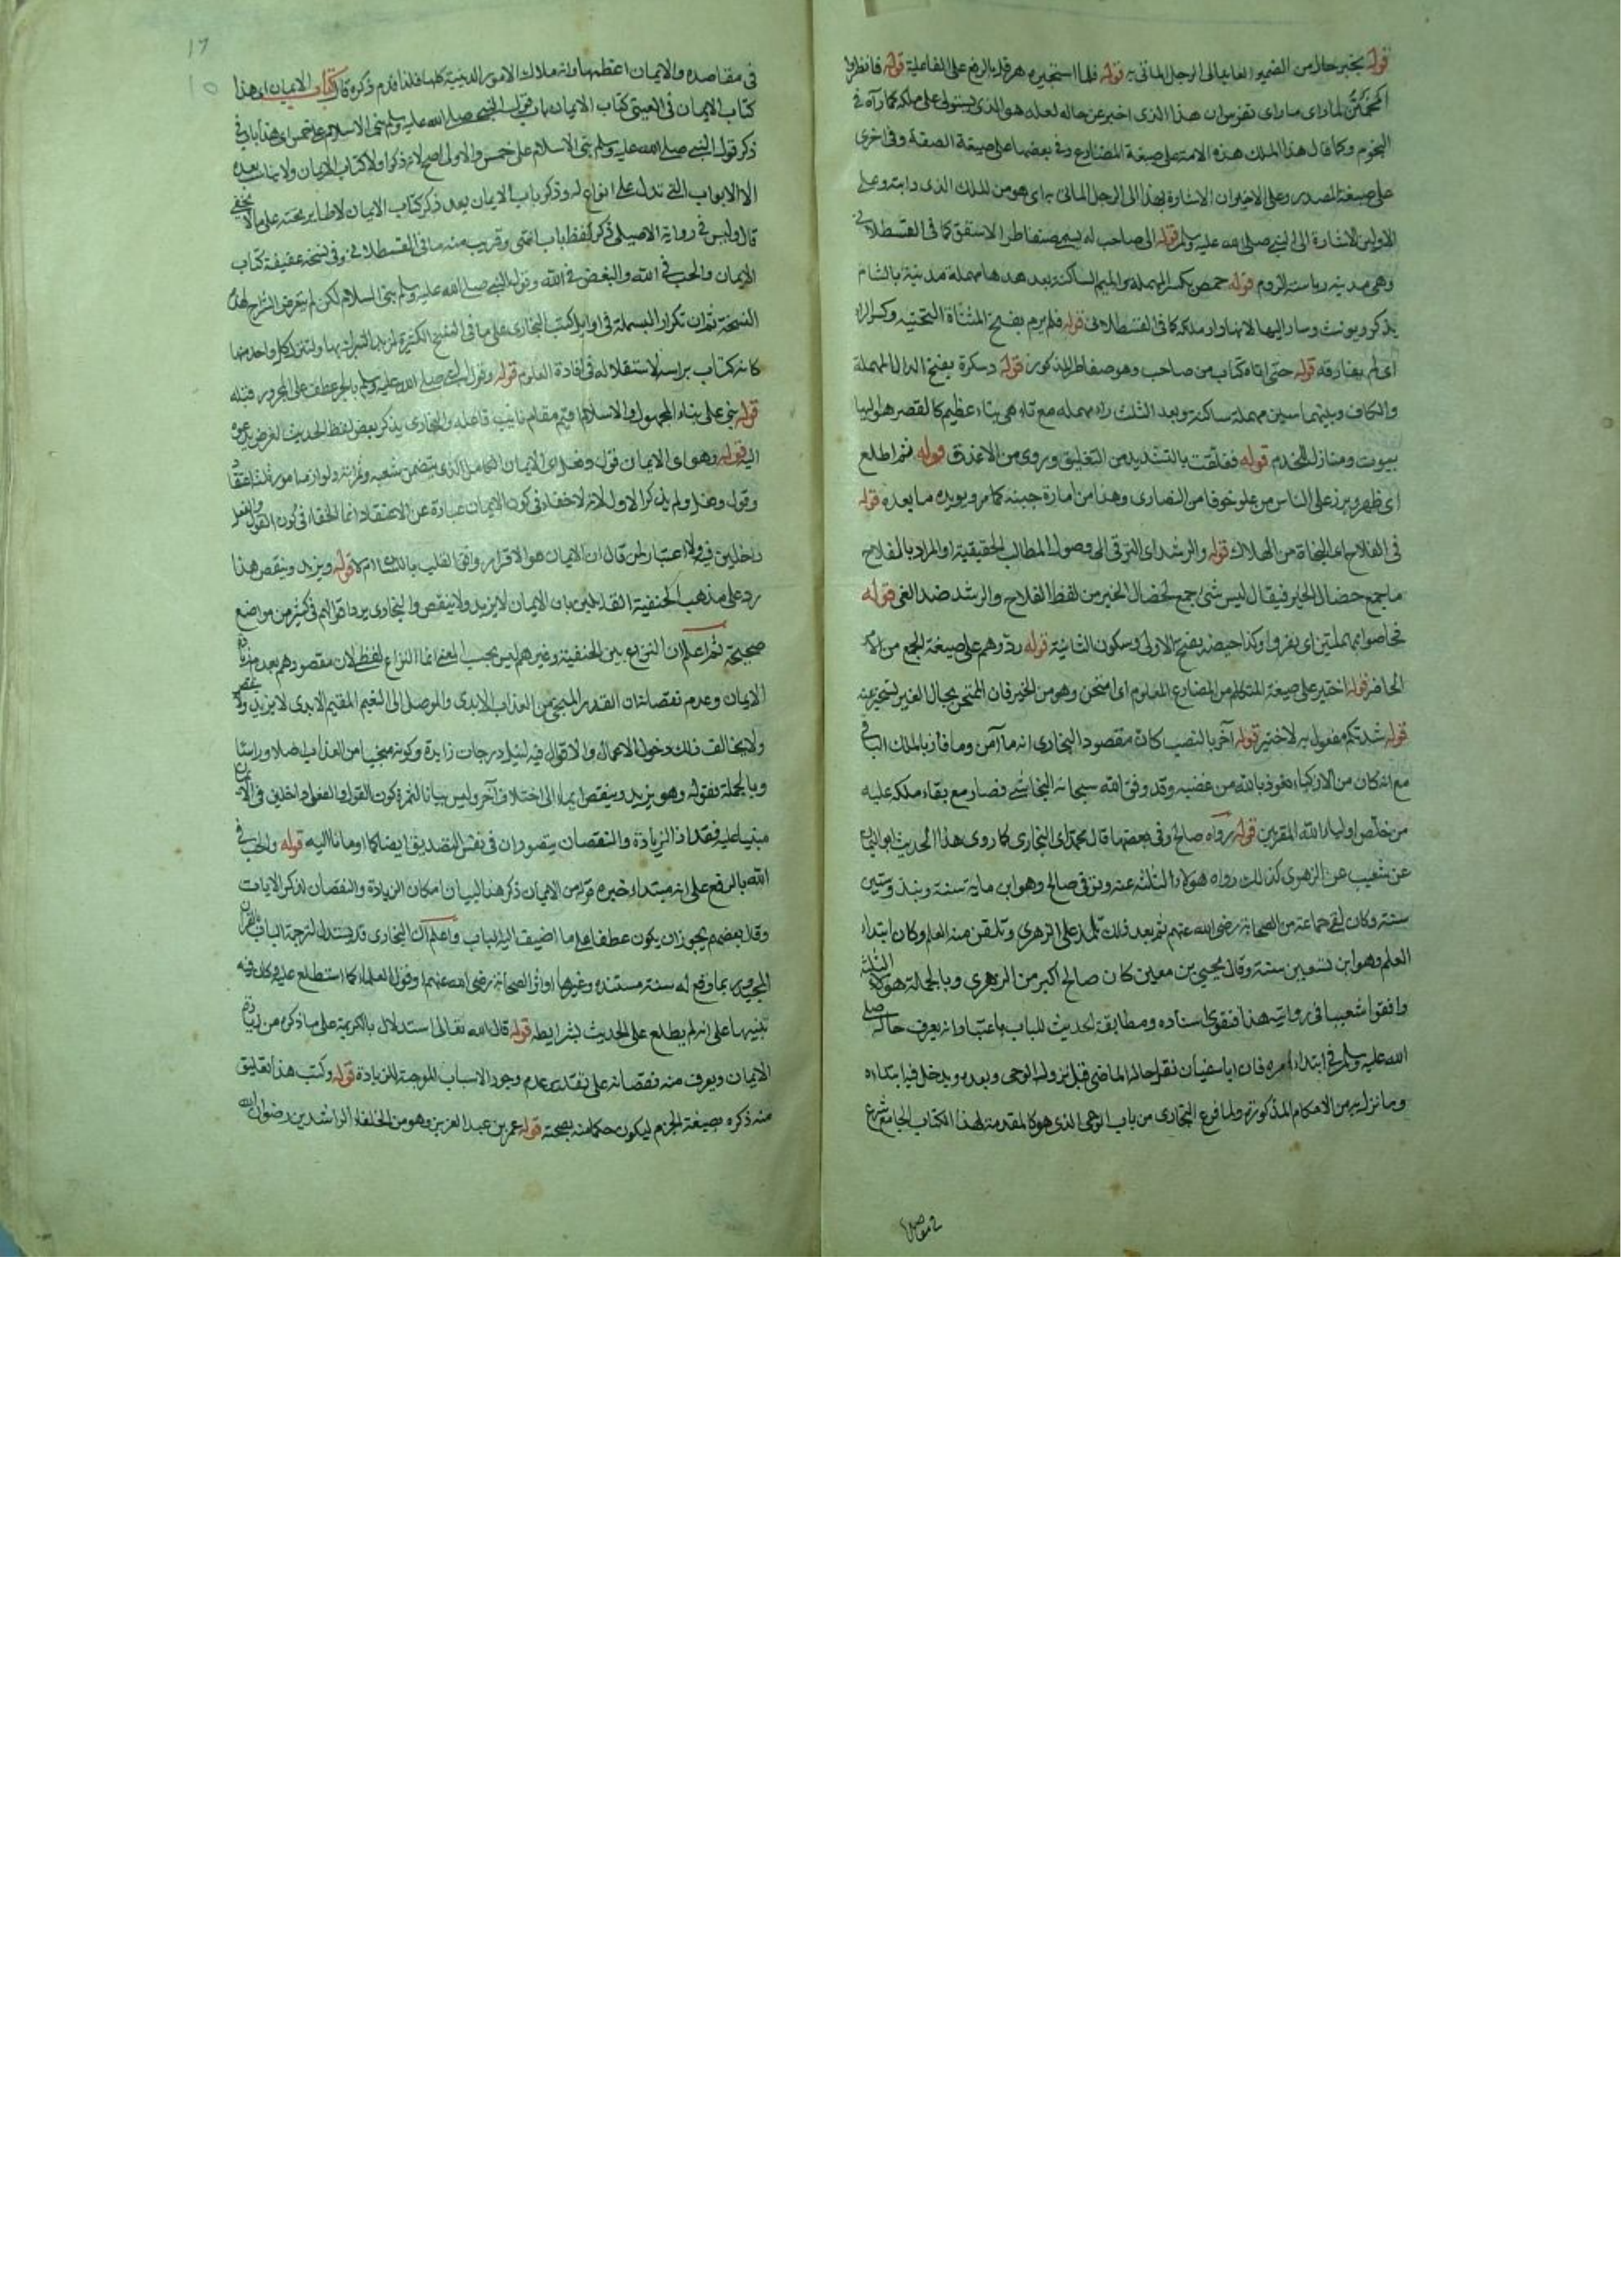 قوله يخبر حال من الضمير العايد الى الرجل الماتى به قوله فلما استخبره هرقل بالرفع على الفاعلية قوله فانظروا
لما راى ما راى تفرس ان هذا الذى اخبر عن حاله لعله هو الذى يستولى على ملكه كما رآه فى
النجوم وكما قال هذا الملك هذه الامة على صيغة المضارع وفى بعضها على صيغة الصفة وفى اخرى
على صيغة المصدر وعلى الاخيران الاشارة بهذا الى الرجل الماتى به اى هو من الملك الذى رايته وعلى
الاولين الاشارة الى النبى صلى الله عليه وسلم قوله الى صاحب له يسمى ضغاطر الاسقف كما فى القسطلانى
وهى مدينه رياسة الروم قوله حمص بكسر المهملة والميم الساكنة وبعدها مهملة مدينة بالشام
يذكر ويونث وسار اليها لانها دار ملكه كما فى القسطلانى قوله فلم يرم بفتح المثناة التحتيه وكسر الراء
اى لم يفارقه قوله حتى اتاه كتاب من صاحب وهو ضغاطر المذكور قوله دسكرة بفتح الدال المهملة
والكاف وبينهما سين مهملة ساكنة وبعد الثلث راء مهمله مع تاء هى بناء عظيم كالقصر حواليها
بيوت ومنازل للخدم قوله فغلقت بالتشديد من التغليق وروى من الاغلاق قوله ثم اطلع
اى ظهر وبرز على الناس من علو خوفا من النصارى وهذا من امارة جبنه كما مر ويويده ما بعده قوله
فى الفلاح اى النجاة من الهلاك قوله والرشد اى الترقى الى وصول المطالب الحقيقية او المراد بالفلاح
ما جمع خصال الخير فيقال ليس شئ اجمع لخصال الخير من لفظ الفلاح والرشد ضد الغى قوله
فحاصوا بمهملتين اى نفروا وكذا حيصة بفتح الاولى وسكون الثانية قوله ردوهم على صيغة الجمع من الامر
الحاضر قوله اختبر على صيغة المتكلم من المضارع المعلوم اى امتحن وهو من الخبر فان الممتحن بحال الغير يستخبر عنه
قوله شدتكم مفعول به لاختبر قوله آخر بالنصب كان مقصود البخارى انه ما آمن وما فاز بالملك الباقى
مع انه كان من الازكياء نعوذ بالله من غضبه وقد وفق الله سبحانه النجاشى فصار مع بقاء ملكه عليه
من خلص اولياء الله المقربين قوله رواه صالح وفى بعضها قال محمد اى البخارى كما روى هذا الحديث ابو اليمان
عن شعيب عن الزهرى كذالك رواه هولاء الثلثه عنه وتوفى صالح وهو ابن ماية سنة ونيف وستين
سنة وكان لقى جماعة من الصحابة رضى الله عنهم ثم بعد ذلك تلمذ على الزهرى وتلقن منه العلم وكان ابتداء
العلم وهو ابن تسعين سنة وقال يحيى بن معين كان صالح اكبر من الزهرى وبالجملة هولاء الثلثة
وافقوا شعيبا فى روايته هذا فتقوى اسناده ومطابقة الحديث للباب باعتبار انه يعرف حاله صلى
الله عليه وسلم فى ابتداء امره فان ابا سفيان نقل حاله الماضى قبل نزول الوحى وبعده ويدخل فيه ابتداءه
وما نزل اليه من الاحكام المذكورة ولما فرغ البخارى من باب الوحى الذى هو كالمقدمة لهذا الكتاب الجامع شرع
فى مقاصده
فى مقاصده والايمان اعظمها وانه ملاك الامور الدينية كلها فلذا قدم ذكره قال كتاب الايمان اى هذا
كتاب الايمان فى العينى كتاب الايمان باب قول النبى صلى الله عليه وسلم بنى الاسلام على خمس اى هذا باب فى
ذكر قول النبى صلى الله عليه وسلم بنى الاسلام على خمس والاولى اصح لانه ذكر اولا كتاب الايمان ولا يناسب بعده
الا الابواب التى تدل على انواع له وذكر باب الايمان بعد ذكر كتاب الايمان لا طايل تحته على ما لا يخفى
قال وليس فى رواية الاصيلى ذكر لفظ باب انتهى وقريب منه ما فى القسطلانى وفى نسخة عفيفة كتاب
الايمان والحب فى الله والبغض فى الله وقول النبى صلى الله عليه وسلم بنى الاسلام لكن لم يتعرض الشراح لهذه
النسخة ثم ان تكرار البسملة فى اوايل كتب البخارى على ما فى النسخ الكثيرة لمزيد التبرك بها ولتنزيل كل واحد منها
كانه كتاب براسه لاستقلاله فى افادة العلوم قوله وقول النبى صلى الله عليه وسلم بالجر عطف على المجرور قبله
قوله بنى على بناء المجهول والاسلام اقيم مقام نايب فاعله والبخارى يذكر بعض لفظ الحديث لغرض يدعوه
اليه قوله وهو اى الايمان قول وفعل اى الايمان الكامل الذى يتضمن شعبه وثمراته ولوازمه امور ثلثة اعتقاد
وقول وفعل ولم يذكر الاول لانه لا خفاء فى كون الايمان عبارة عن الاعتقاد انما الخفاء فى كون القول والفعل
داخلين فيه ولا اعتبار لمن قال ان الايمان هو الاقرار وافق القلب باللسان ام لا قوله ويزيد وينقص هذا
رد على مذهب الحنفية القايلين بان الايمان لا يزيد ولا ينقص والبخارى يرد اقوالهم فى كثير من مواضع
صحيحة ثم اعلم ان النزاع بين الحنفية وغيرهم ليس بحسب المعنى انما النزاع لفظى لان مقصودهم بعدم زيادة
الايمان وعدم نقصانه ان القدر المنجى من العذاب الابدى والموصل الى النعيم المقيم الابدى لا يزيد ولا ينقص
ولا يخالف ذلك دخول الاعمال والاقوال فيه لنيل درجات زايدة وكونه منجيا من العذاب اصلا وراسا
وبالجملة بقوله وهو يزيد وينقص ايماء الى اختلاف آخر وليس بيانا لثمرة كون القول والفعل داخلين فى الايمان
مبنيا عليه فقط اذ الزيادة والنقصان يتصوران فى نفس التصديق ايضا كما اومانا اليه قوله والحب فى
الله بالرفع على انه مبتداء خبره قوله من الايمان ذكر هذا لبيان امكان الزيادة والنقصان لذكر الايات
وقال بعضهم يجوز ان يكون عطفا على ما اضيف اليه الباب واعلم ان البخارى قد يستدل لترجمة الباب بالقران
المجيد وبما وقع له سنة مستنده وغيرها او اثر الصحابة رضى الله عنهم او قول العلماء كما استطلع عليه وكان فيه
تنبيها على انه لم يطلع على الحديث بشرايطه قوله قال الله تعالى استدلال بالكريمة على ما ذكره من زيادة
الايمان ويعرف منه نقصانه على تقدير عدم وجود الاسباب الموجبة للزيادة قوله وكتب هذا تعليق
منه ذكره بصيغة الجزم ليكون حكما منه بصحته قوله عمر بن عبد العزيز وهو من الخلفاء الراشدين رضوان الله